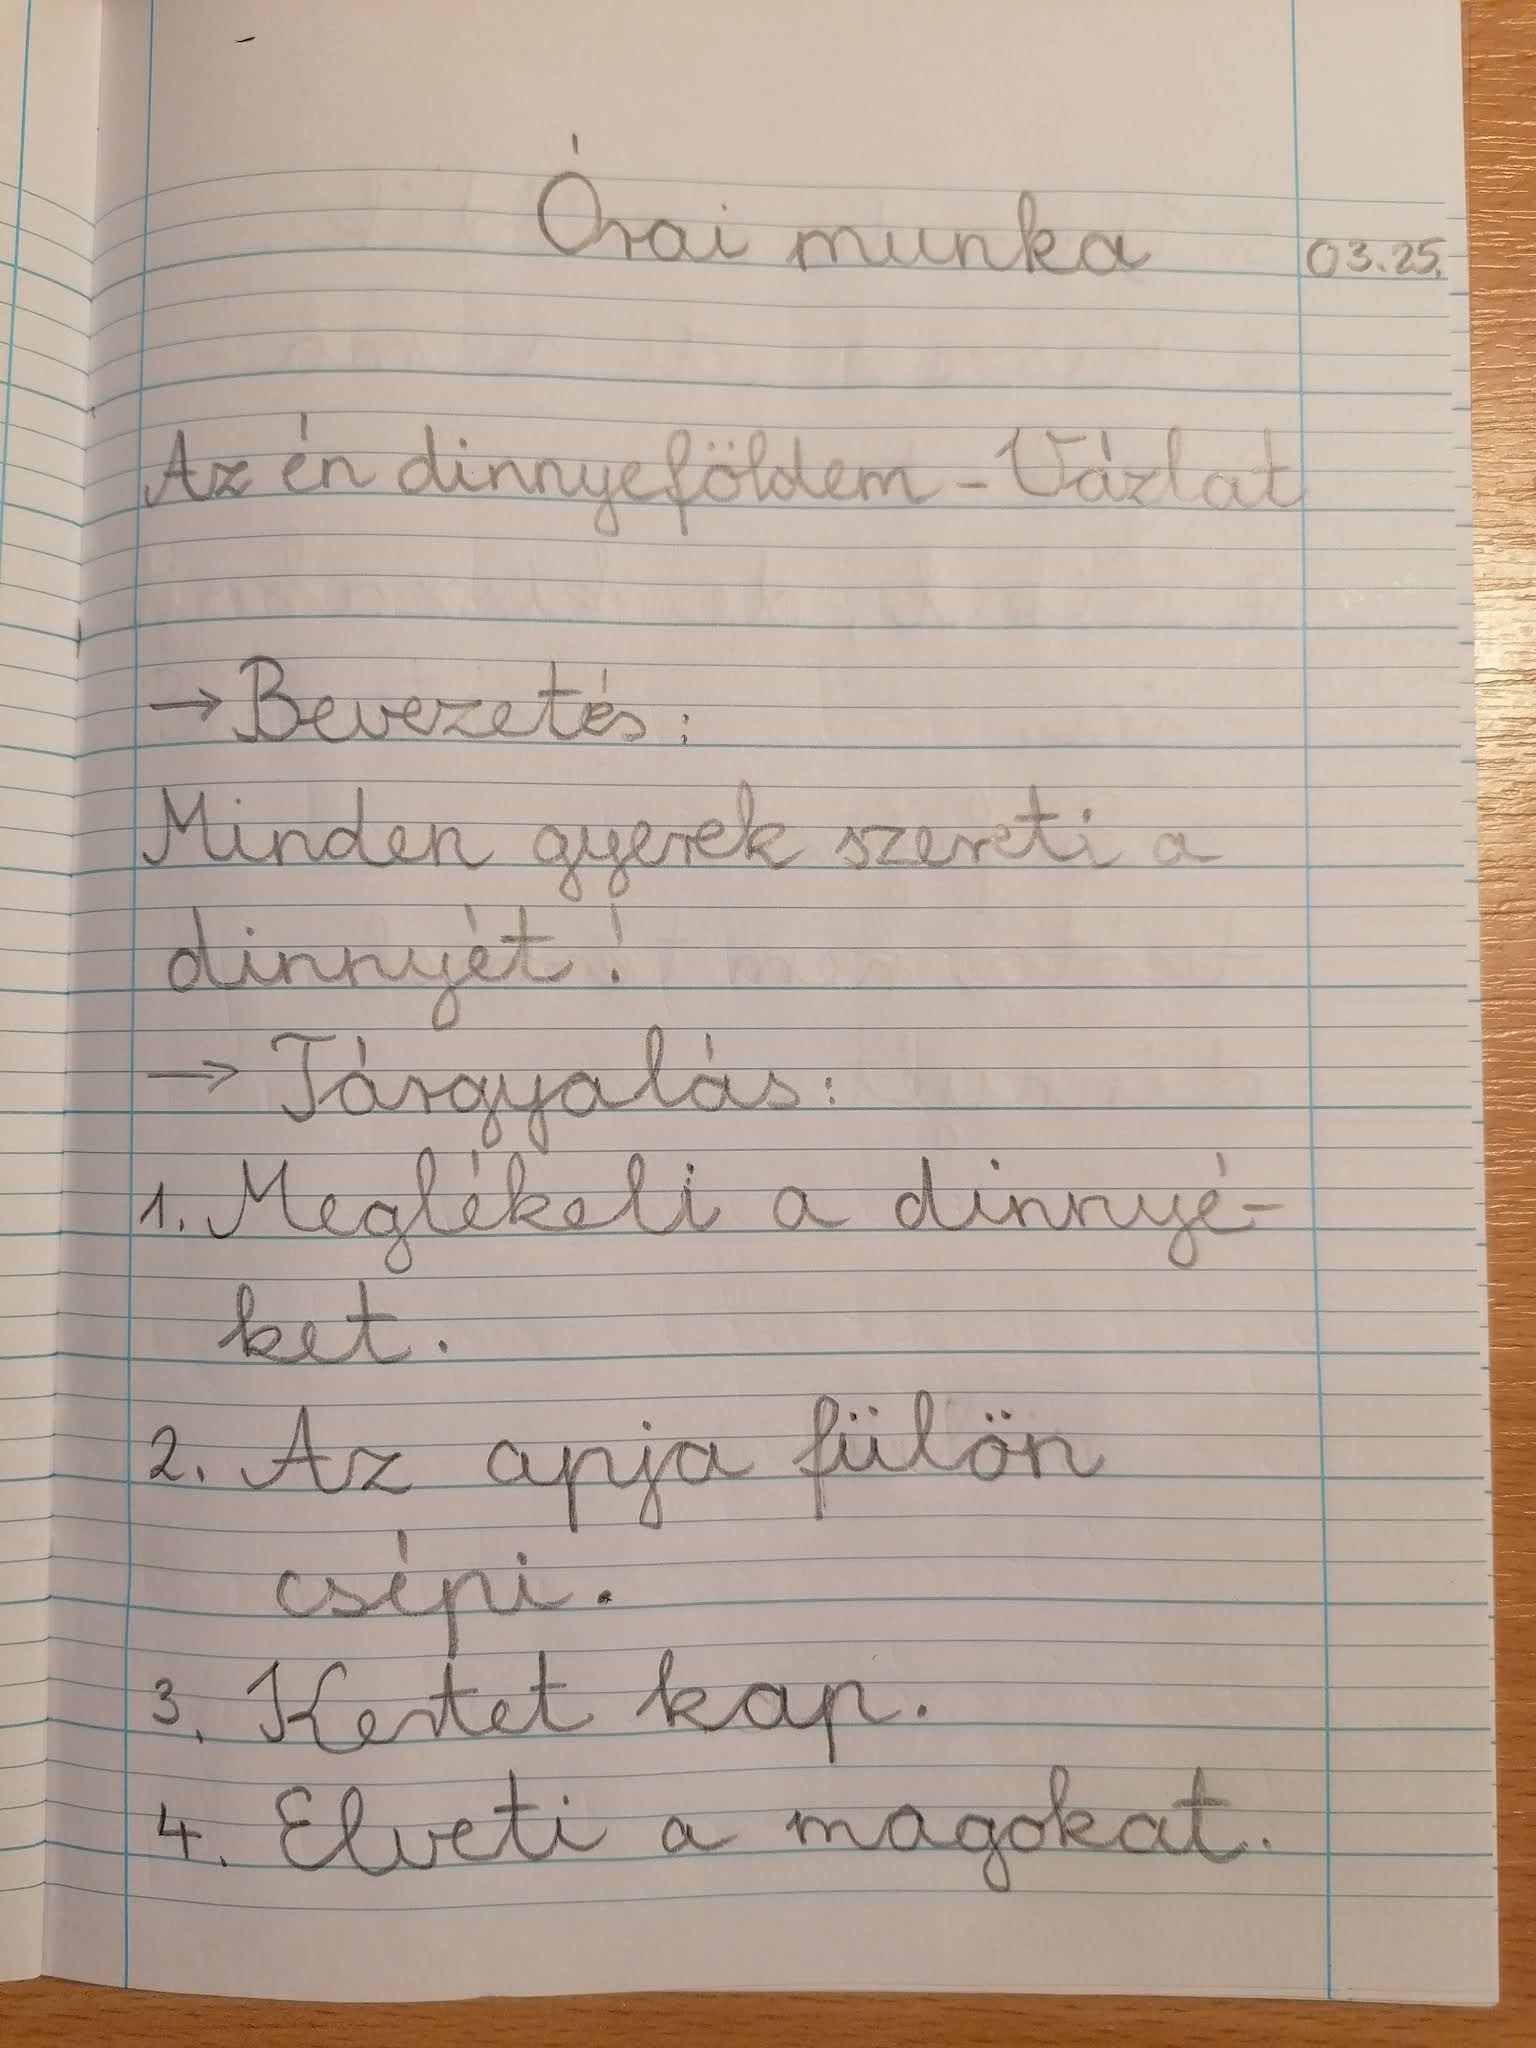 Órai munka 03.25.
Az én dinnyeföldem - Vázlat
→ Bevezetés:
Minden gyerek szereti a
dinnyét!
→ Tárgyalás:
1. Meglékeli a dinnyé-
ket.
2. Az apja fülön
csípi.
3. Kertet kap.
4. Elveti a magokat.